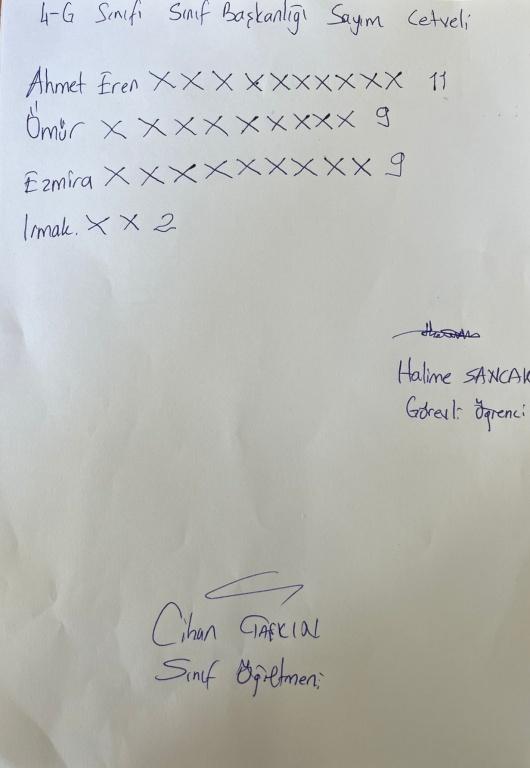 4-G Sınıfı Sınıf Başkanlığı Sayım Cetveli
Ahmet Eren X X X X X X X X X X 11
Ömür X X X X X X X X X 9
Ezmira X X X X X X X X X 9
Irmak. X X 2
Halime SANCAK
Görevli Öğrenci
Cihan TAŞKIN
Sınıf Öğretmeni